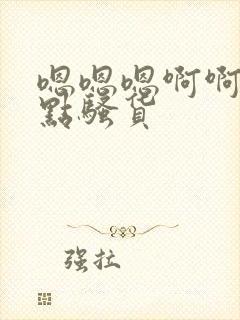 嗯嗯嗯啊啊
點騷货
强拉